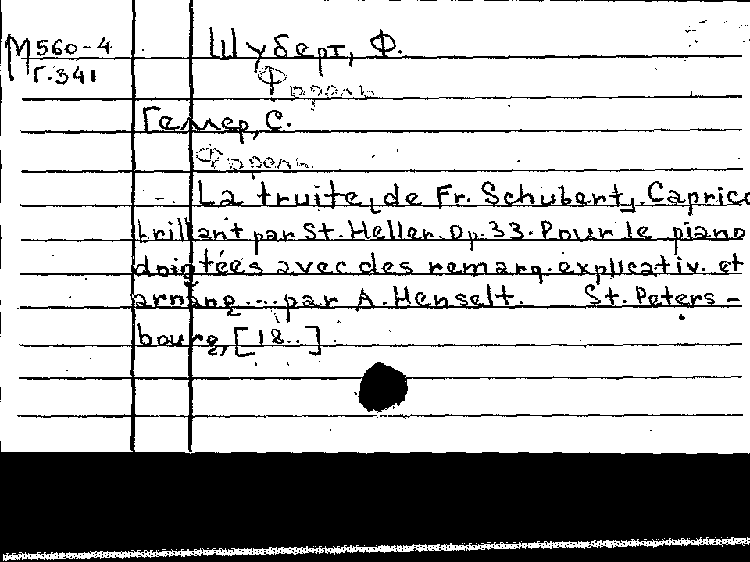 М 560-4
Г.341
Шуберт, Ф.
Форель
Геллер, С.
Форель
La truite [de Fr. Schubert]. Capricc
brillant par St. Heller. Op. 33. Pour le piano
doigtées avec des remarq. explicativ. et
arrang... par A. Henselt. St. Peters-
bourg, [18..]